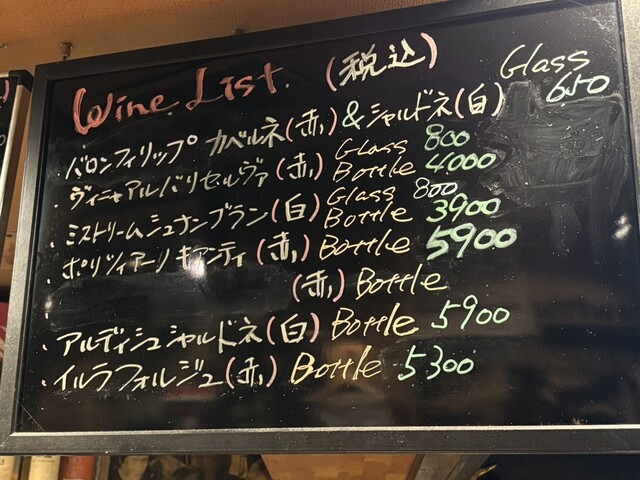 Wine List (税込)
Glass
・バロンフィリップ カベルネ(赤)&シャルドネ(白) 650
・ヴィニャアルバリセルヴァ(赤) Glass 800
Bottle 4000
・ミストリームシュナンブラン(白) Glass 800
Bottle 3900
・ポリツィアーノキアンティ(赤) Bottle 5900
・ (赤) Bottle
・アルディシュシャルドネ(白) Bottle 5900
・イルラフォルジュ(赤) Bottle 5300